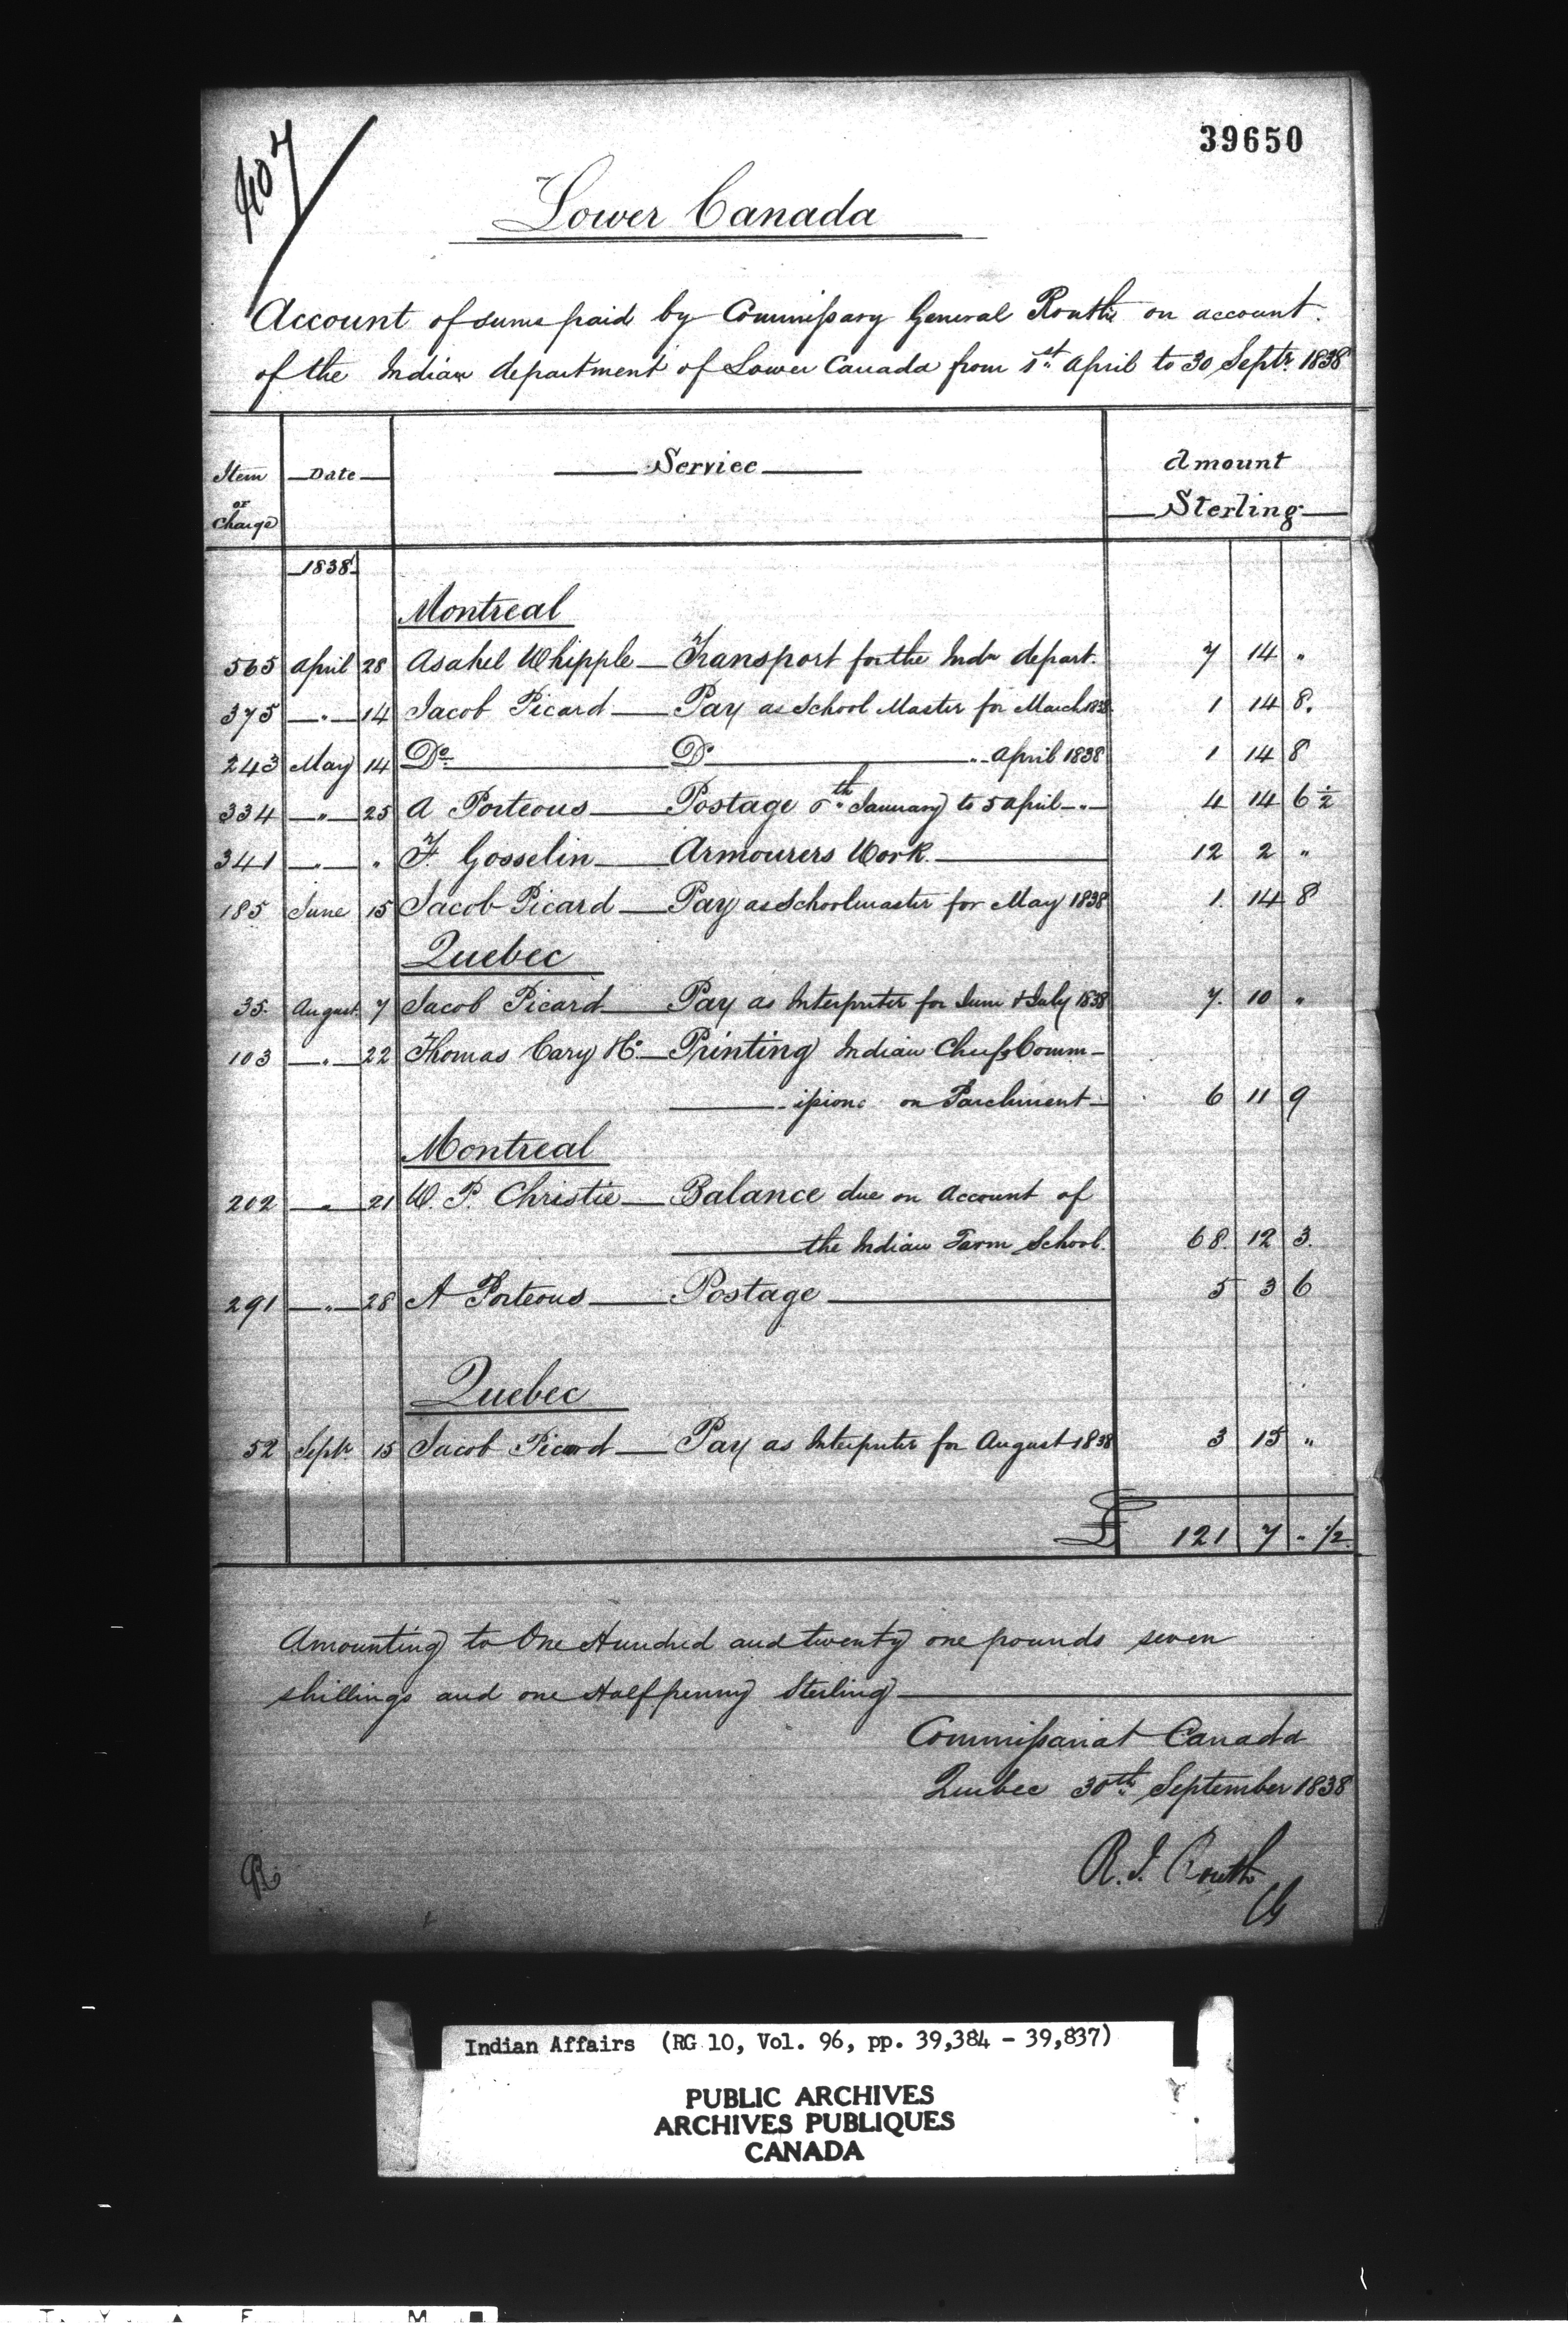 39650
407
Lower Canada
Account of sums paid by Commissary General Routh on account
of the Indian department of Lower Canada from 1st April to 30 Septr 1838
Item or Charge Date Service Amount Sterling
1838
Montreal
565 April 28 Asahel Whipple — Transport for the Indn depart. 7 14 "
375 — " — 14 Jacob Picard — Pay as School Master for March 1838 1 14 8.
243 May 14 Do — Do — " April 1838 1 14 8
334 — " — 25 A Porteous — Postage 6th January to 5 April — " — 4 14 6 1/2
341 — " — " F. Gosselin — Armourers Work. — 12 2 "
185 June 15 Jacob Picard — Pay as Schoolmaster for May 1838 1. 14 8
Quebec
35. August 7 Jacob Picard — Pay as Interpreter for June & July 1838 7. 10 "
103 — " — 22 Thomas Cary & Co — Printing Indian Chiefs Comm-
— " issions on Parchment — 6 11 9
Montreal
202 — " — 21 W. P. Christie — Balance due on Account of
— the Indian Farm School. 68. 12 3.
291 — " — 28 A Porteous — Postage — 5 3 6
Quebec
52 Septr 15 Jacob Picard — Pay as Interpreter for August 1838 3 15 "
£ 121 7 " 1/2
Amounting to One Hundred and twenty one pounds seven
shillings and one Halfpenny Sterling —
Commissariat Canada
Quebec 30th September 1838
R. I. Routh
CG
R
Indian Affairs (RG 10, Vol. 96, pp. 39,384 - 39,837)
PUBLIC ARCHIVES
ARCHIVES PUBLIQUES
CANADA